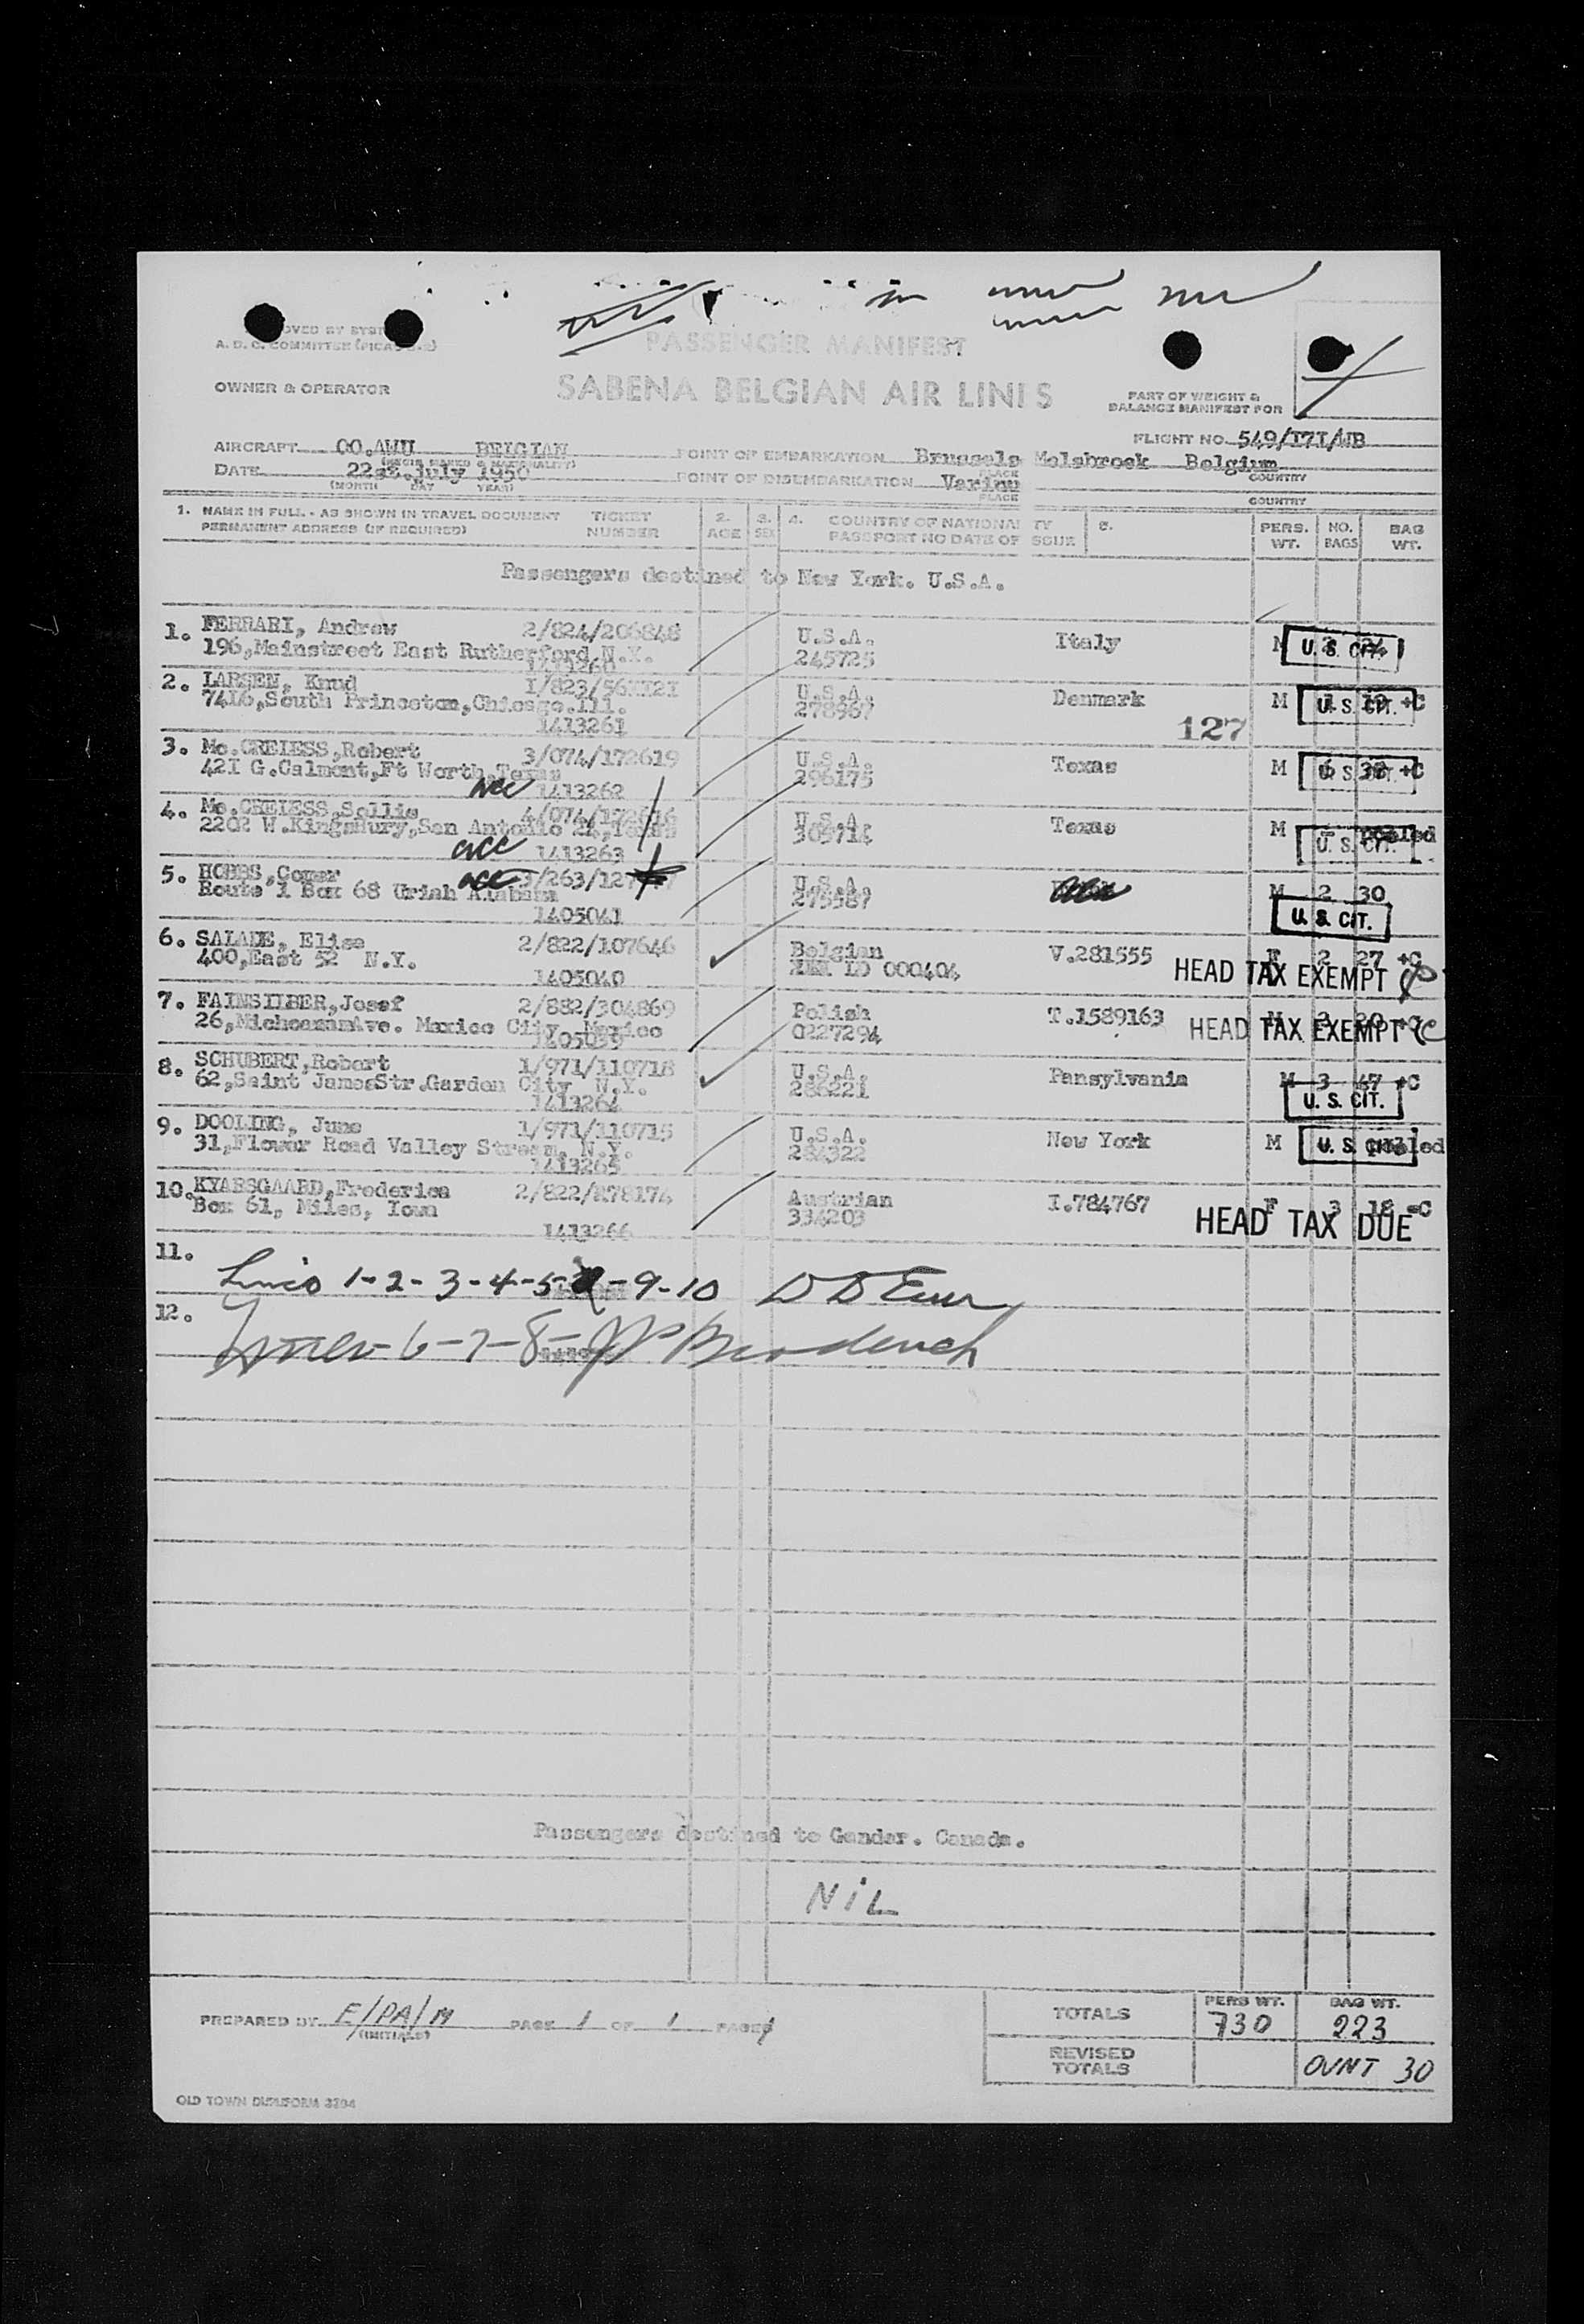 PASSENGER MANIFEST
A. D. C. COMMITTEE
OWNER & OPERATOR
SABENA BELGIAN AIR LINES
PART OF WEIGHT &
BALANCE MANIFEST FOR
FLIGHT NO. 549/I7I/WB
AIRCRAFT OO.AWU BELGIAN
POINT OF EMBARKATION Brussels Melsbroek Belgium
PLACE COUNTRY
DATE 22st. july 1950
(MONTH DAY YEAR)
POINT OF DISEMBARKATION
PLACE COUNTRY
1. NAME IN FULL - AS SHOWN IN TRAVEL DOCUMENT TICKET 2. 3. 4. COUNTRY OF NATIONALITY PERS. NO. BAG
PERMANENT ADDRESS (IF REQUIRED) NUMBER AGE SEX PASSPORT NO DATE OF ISSUE WT. BAGS WT.
Passengers destined to New York. U.S.A.
1. FERRARI, Andrew 2/824/206848 U.S.A. Italy M U. S. CIT.
196,Mainstreet East Rutherford N.Y. 245725
1413260
2. LARSEN, Knud U.S.A. Denmark M U. S. CIT. +C
7416,South Princeton,Chicago.Ill. 278967
1413261 127
3. Mc.CRELESS,Robert 3/074/172619 U.S.A. Texas M U. S. CIT. +C
42I G.Calmont,Ft Worth,Texas 296175
acc 1413262
4. Mc.CRELESS,Sollie U.S.A. Texas M U. S. CIT.
2202 W.Kingsbury,San Antonio
acc 1413263
5. HOBBS,Comer acc U.S.A. M 2 30
Route 1 Box 68 Uriah Alabama 275587
1405041 U. S. CIT.
6. SALADE, Elise 2/822/107646 Belgian V.281555 F 2 27 +C
400,East 52 N.Y. LD 000404 HEAD TAX EXEMPT
1405040
7. FAINSILBER,Josef 2/882/304869 Polish T.1589163 HEAD TAX EXEMPT
26,MichoananAve. Mexico City Mexico 0227294
1405039
8. SCHUBERT,Robert 1/971/110718 U.S.A. Pansylvania M 3 47 +C
62,Saint JamesStr.Garden City N.Y. 286221 U. S. CIT.
1413264
9. DOOLING, June 1/971/110715 U.S.A. New York M U. S. CIT. pooled
31,Flower Road Valley Stream, N.Y. 284322
1413265
10. KYAESGAARD,Frederica Austrian I.784767 F 3 18 =C
Box 61, Miles, Iowa 334203 HEAD TAX DUE
1413266
11.
1-2-3-4-5- -9-10
12.
6-7-8-
Passengers destined to Gander. Canada.
NiL
PREPARED BY E/PA/M PAGE 1 OF 1 PAGES
(INITIALS)
TOTALS PERS WT. 730 BAG WT. 223
REVISED TOTALS OVNT 30
OLD TOWN